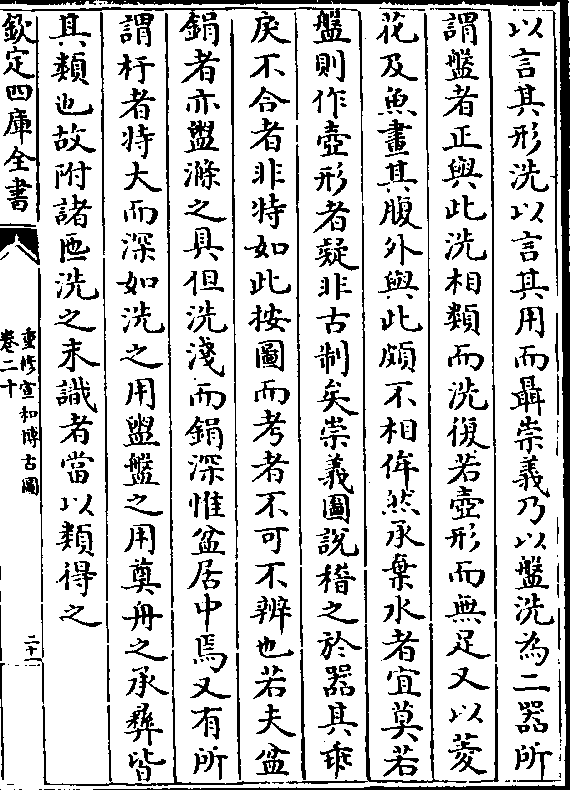 以言其形洗以言其用而聶崇義乃以盤洗為二器所
謂盤者正與此洗相類而洗復若壺形而無足又以菱
花及魚畫其腹外與此頗不相侔然承棄水者宜莫若
盤則作壺形者疑非古制矣崇義圖說稽之於器其乖
戾不合者非特如此按圖而考者不可不辨也若夫盆
鋗者亦盥滌之具但洗淺而鋗深惟盆居中焉又有所
謂杅者特大而深如洗之用盥盤之用奠舟之承彝皆
其類也故附諸匜洗之末識者當以類得之
欽定四庫全書
重修宣和博古圖
卷二十
二十一